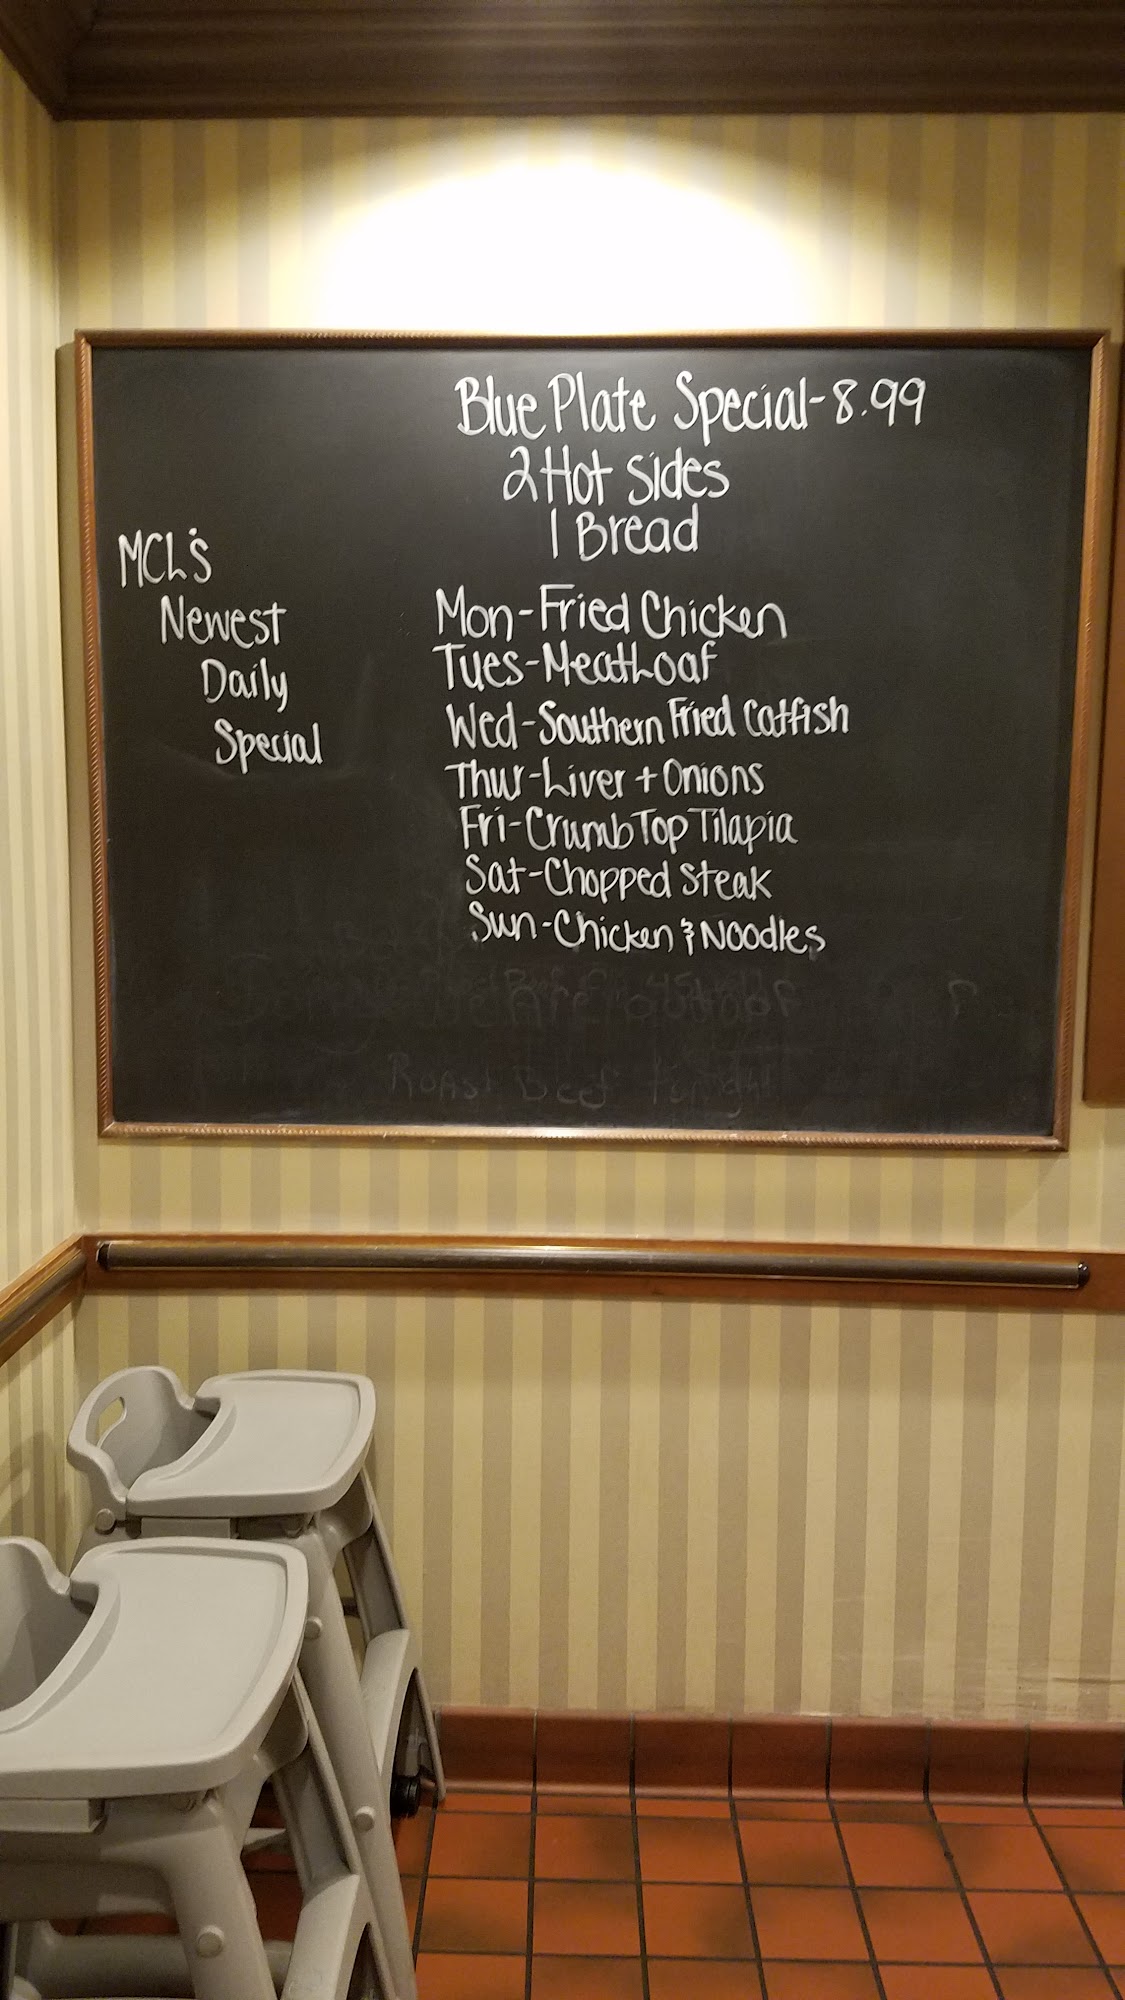 Blue Plate Special-8.99
2 Hot Sides
1 Bread
MCL's
Newest
Daily
Special
Mon-Fried Chicken
Tues-MeatLoaf
Wed-Southern Fried Catfish
Thur-Liver + Onions
Fri-Crumb Top Tilapia
Sat-Chopped Steak
Sun-Chicken & Noodles
Roast Beef tonight